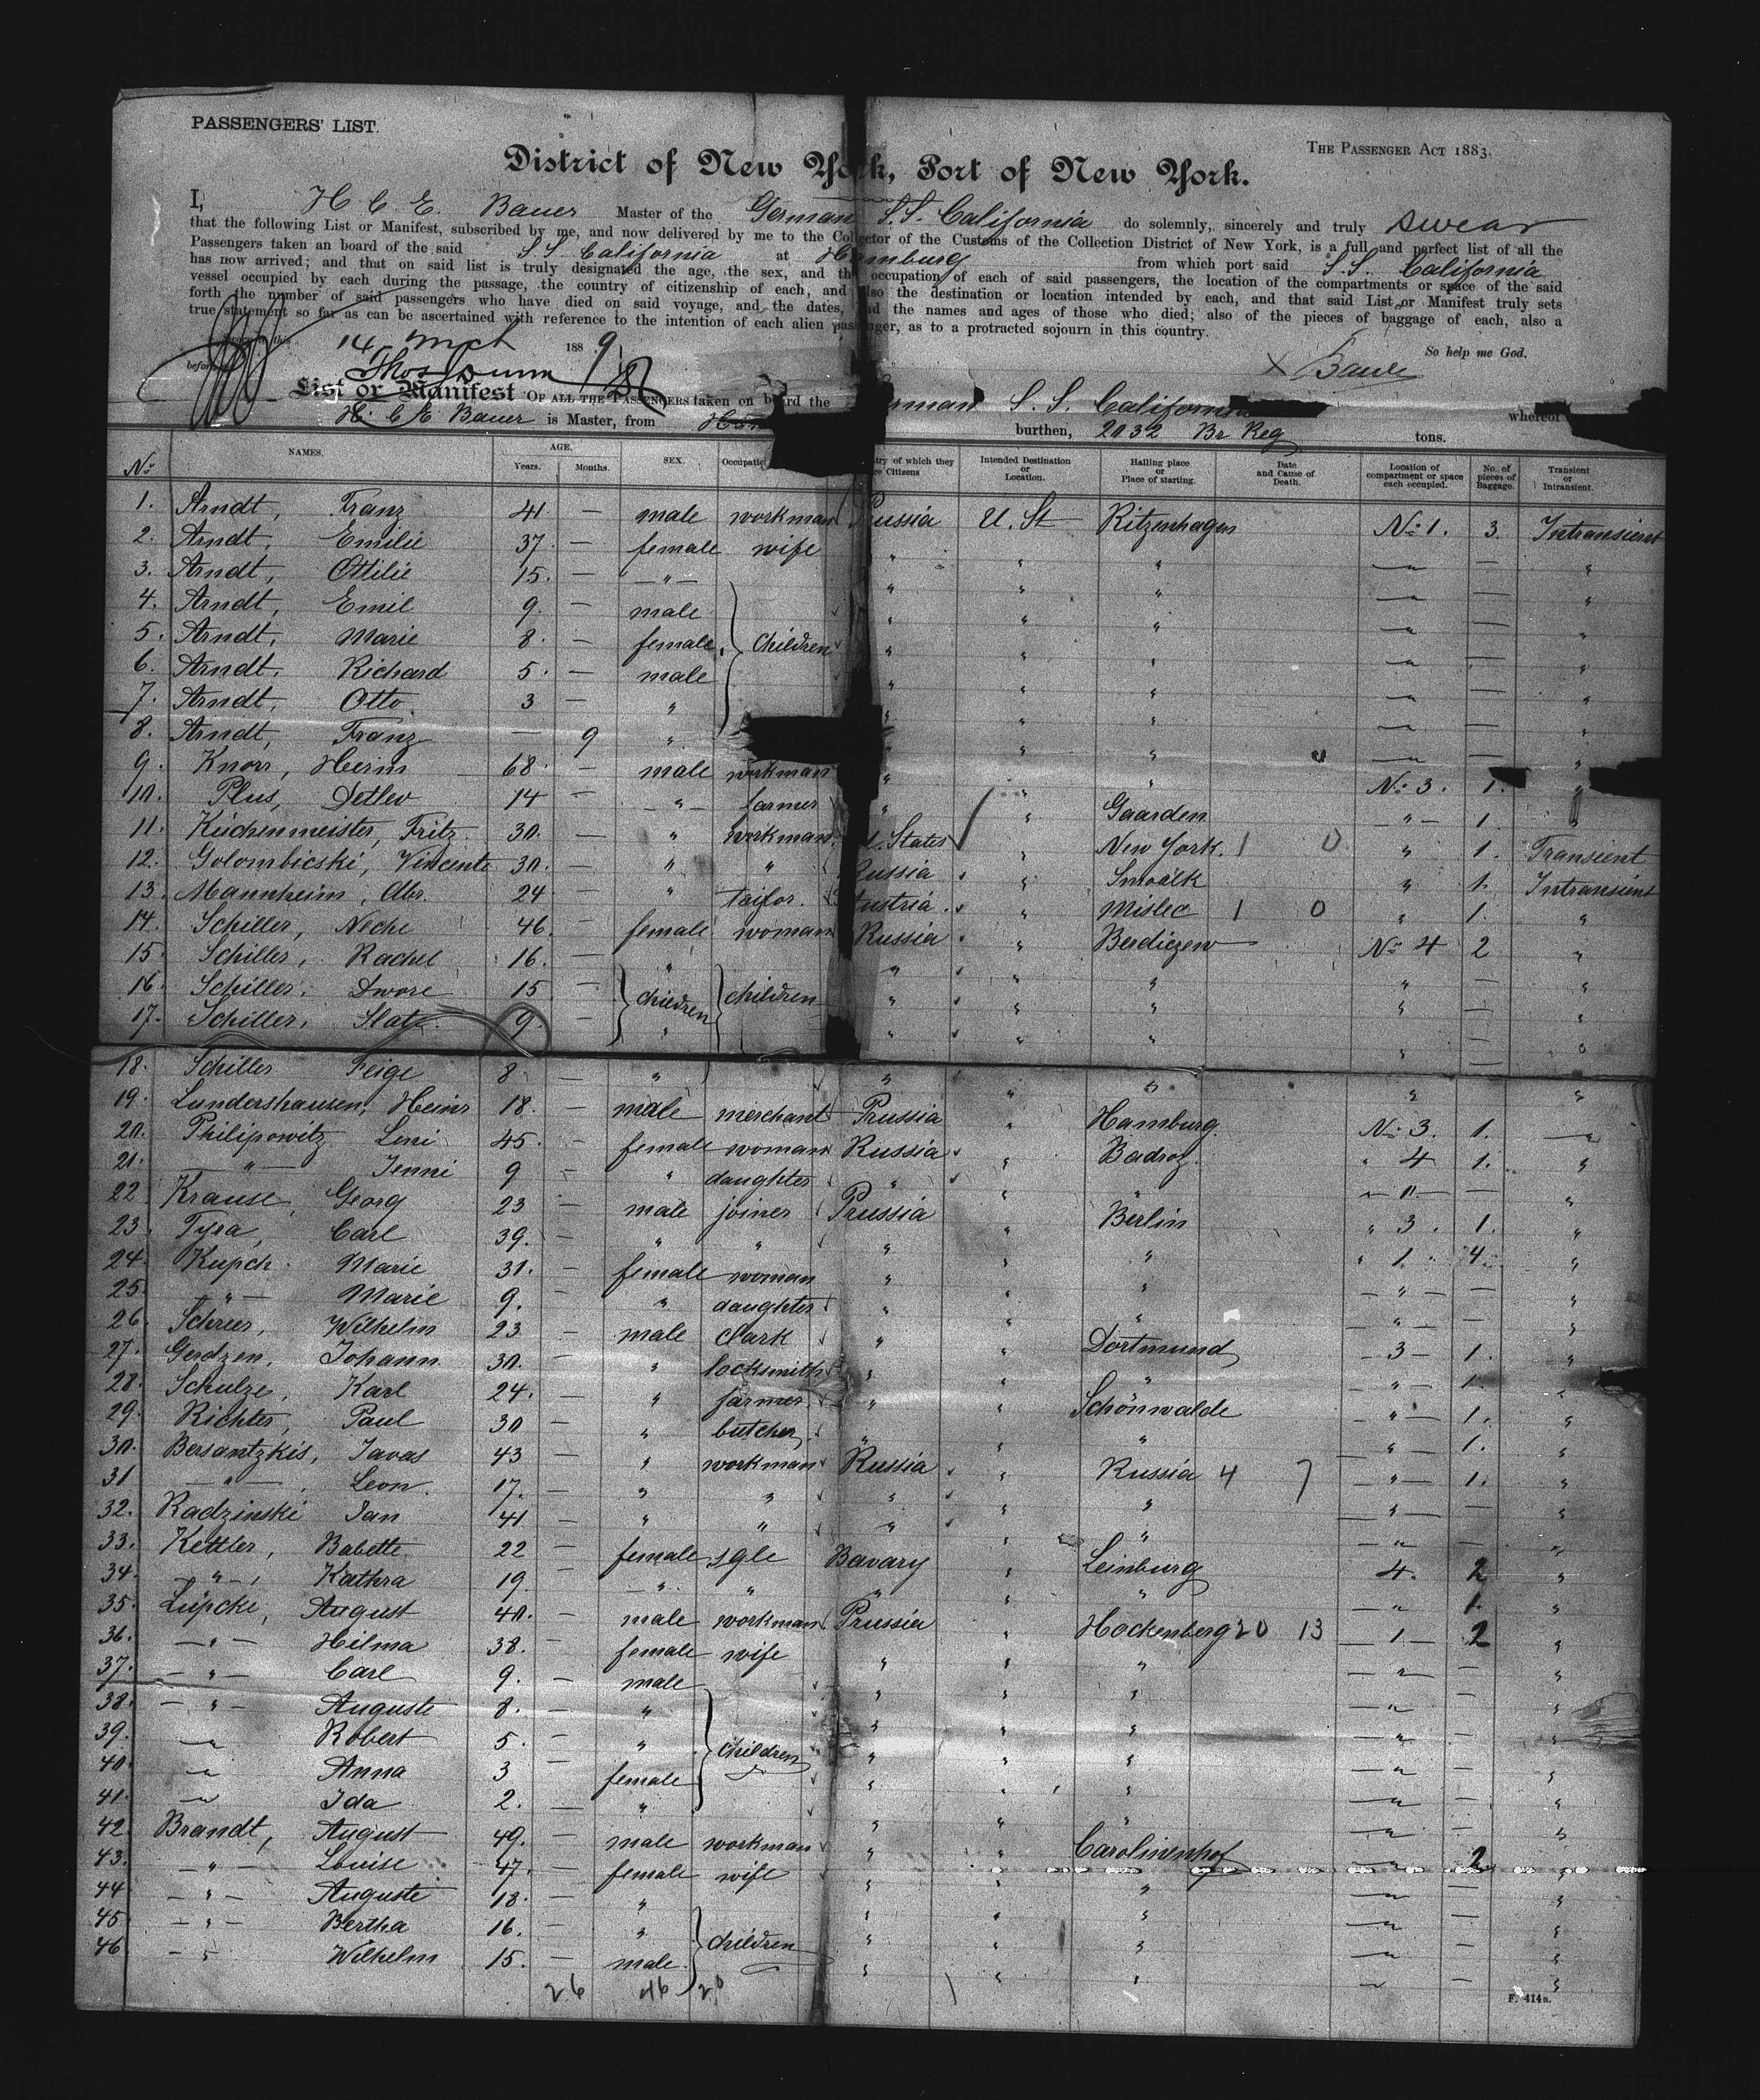 PASSENGERS' LIST.
THE PASSENGER ACT 1883.
District of New York, Port of New York.
I, H C E. Bauer Master of the German S.S. California do solemnly, sincerely and truly swear
that the following List or Manifest, subscribed by me, and now delivered by me to the Collector of the Customs of the Collection District of New York, is a full and perfect list of all the
Passengers taken an board of the said S.S. California at Hamburg from which port said S.S. California
has now arrived; and that on said list is truly designated the age, the sex, and the occupation of each of said passengers, the location of the compartments or space of the said
vessel occupied by each during the passage, the country of citizenship of each, and also the destination or location intended by each, and that said List or Manifest truly sets
forth the number of said passengers who have died on said voyage, and the dates, and the names and ages of those who died; also of the pieces of baggage of each, also a
true statement so far as can be ascertained with reference to the intention of each alien passenger, as to a protracted sojourn in this country.
So help me God.
this 14 Mch 1889
before Thos Dunn
X Bauer
List or Manifest OF ALL THE PASSENGERS taken on board the German S. S. California whereof
H. C E Bauer is Master, from Ham burthen, 2032 Br Reg tons.
No NAMES. AGE. Years. Months. SEX. Occupation Country of which they are Citizens Intended Destination or Location. Hailing place or Place of starting. Date and Cause of Death. Location of compartment or space each occupied. No. of pieces of Baggage. Transient or Intransient.
1. Arndt, Franz 41 — male workman Prussia U. St Ritzenhagen No 1. 3. Intransient
2. Arndt, Emilie 37. — female wife " " " —"— — "
3. Arndt, Ottilie 15. — —"— " " " —"— — "
4. Arndt, Emil 9. — male " " " —"— — "
5. Arndt, Marie 8. — female Children " " " —"— — "
6. Arndt, Richard 5. — male " " " —"— — "
7. Arndt, Otto 3 — " " " " —"— — "
8. Arndt, Franz — 9 " " " " —"— — "
9. Knorr, Herm 68. — male workman " " " No 3. 1. "
10. Plus, Detlev 14 — —"— farmer " " Gaarden —"— 1. "
11. Küchenmeister, Fritz 30. — " workman U. States " New York. 1 0 " 1. Transient
12. Golombicski, Vincente 30. — " " Russia " Smoálk " 1. Intransient
13. Mannheim, Abr. 24 — " tailor. Austria. " Mislec 1 0 " 1. "
14. Schiller, Neche 46. — female woman Russia " Berdiczew No 4 2 "
15. Schiller, Rachel 16. — " " " " " — "
16. Schiller, Dwore 15 — children children " " " " — "
17. Schiller, Slate 9. — " " " " " — "
18. Schiller Feige 8 — " " " " " — "
19. Lundershausen, Heinr 18. — male merchant Prussia " Hamburg. No 3. 1. —"—
20. Philipowitz Leni 45. — female woman Russia " Badroz. " 4 1. "
21. —"— Jenni 9 — " daughter " " " —"— — "
22 Krause, Georg 23 — male joiner Prussia " Berlin " 3. 1. "
23. Tyra, Carl 39. — " " " " " " 1. 4. "
24. Kupch. Marie 31. — female woman " " " —"— — "
25. —"— Marie 9. — " daughter " " " —"— — "
26. Schrier, Wilhelm 23 — male clark " " Dortmund —3— 1. "
27. Gerdzen, Johann 30. — " locksmith " " " —"— 1. "
28. Schulze, Karl 24. — " farmer " " Schönwalde —"— 1. "
29. Richter, Paul 30 — " butcher " " " —"— 1. "
30. Bersantzkis, Javas 43 — " workman Russia " Russia 4 7 —"— 1. "
31 —"—, Leon. 17. — " " " " " —"— — "
32. Radzinski Jan 41 — " " " " " —"— — "
33. Kettler, Babette 22 — female sgle Bavary " Leinburg 4. 2 "
34. —"—, Kathra 19. — —"— " " " " —"— 1. "
35. Lüpcke, August 40. — male workman Prussia " Hockenberg 20 13 —1.— 2 "
36. —"— Hilma 38. — female wife " " " —"— — "
37. —"— Carl 9. — male " " " —"— — "
38. —"— Auguste 8. — " " " " —"— — "
39. —"— Robert 5. — " children " " " —"— — "
40. —"— Anna 3 — female " " " —"— — "
41. —"— Ida 2. — " " " " —"— — "
42. Brandt, August 49. — male workman " " Carolinenhof —"— 2 "
43. —"— Louise 47. — female wife " " " —"— — "
44 —"— Auguste 18. — " " " " —"— — "
45. —"— Bertha 16. — " children " " " —"— — "
46 —"— Wilhelm 15. — male " " " —"— — "
26 46 20
F. 414a.